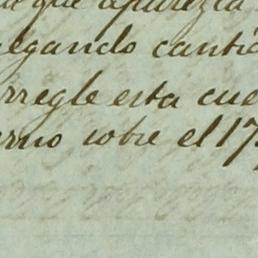 que aparezca
egando cantid
rregle esta cue
erno sobre el 17